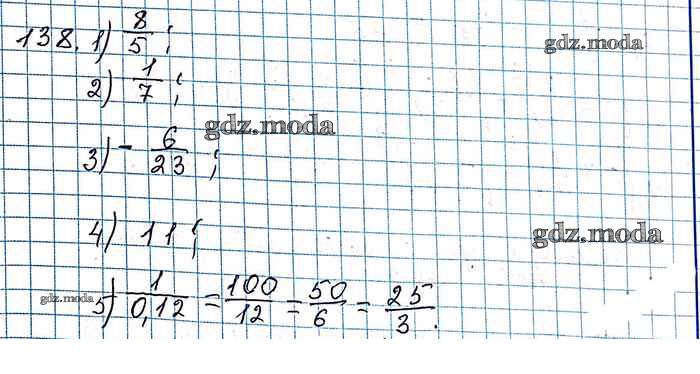 138. 1) 8/5; gdz.moda
2) 1/7;
gdz.moda
3) - 6/23;
4) 11; gdz.moda
gdz.moda 5) 1/0,12 = 100/12 = 50/6 = 25/3.